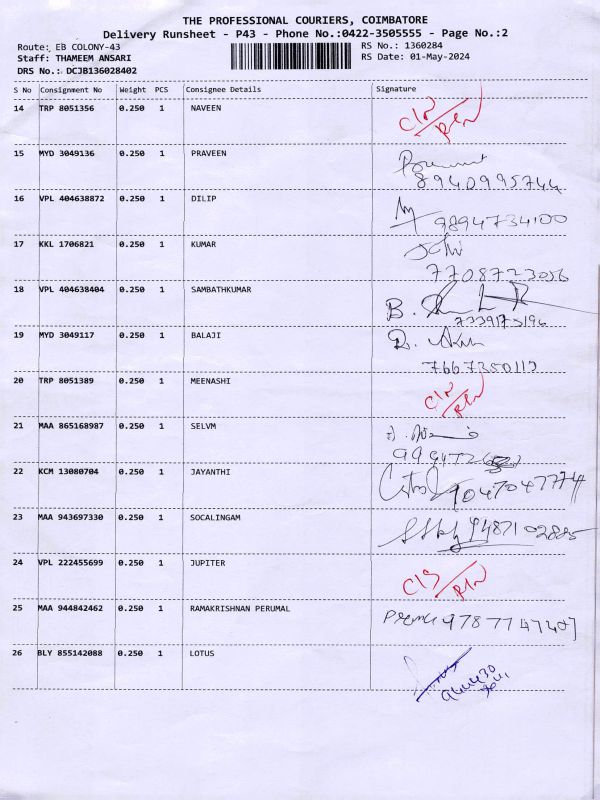 THE PROFESSIONAL COURIERS, COIMBATORE
Delivery Runsheet - P43 - Phone No.:0422-3505555 - Page No.:2
Route: EB COLONY-43
Staff: THAMEEM ANSARI
DRS No.: DCJB136028402
RS No.: 1360284
RS Date: 01-May-2024
S No Consignment No Weight PCS Consignee Details Signature
14 TRP 8051356 0.250 1 NAVEEN
15 MYD 3049136 0.250 1 PRAVEEN
8940995744
16 VPL 404638872 0.250 1 DILIP
9894734100
17 KKL 1706821 0.250 1 KUMAR
7708723056
18 VPL 404638404 0.250 1 SAMBATHKUMAR
B.
7339173196
19 MYD 3049117 0.250 1 BALAJI
7667350113
20 TRP 8051389 0.250 1 MEENASHI
21 MAA 865168987 0.250 1 SELVM
22 KCM 13080704 0.250 1 JAYANTHI
9047047774
23 MAA 943697330 0.250 1 SOCALINGAM
9487102885
24 VPL 222455699 0.250 1 JUPITER
25 MAA 944842462 0.250 1 RAMAKRISHNAN PERUMAL
26 BLY 855142088 0.250 1 LOTUS